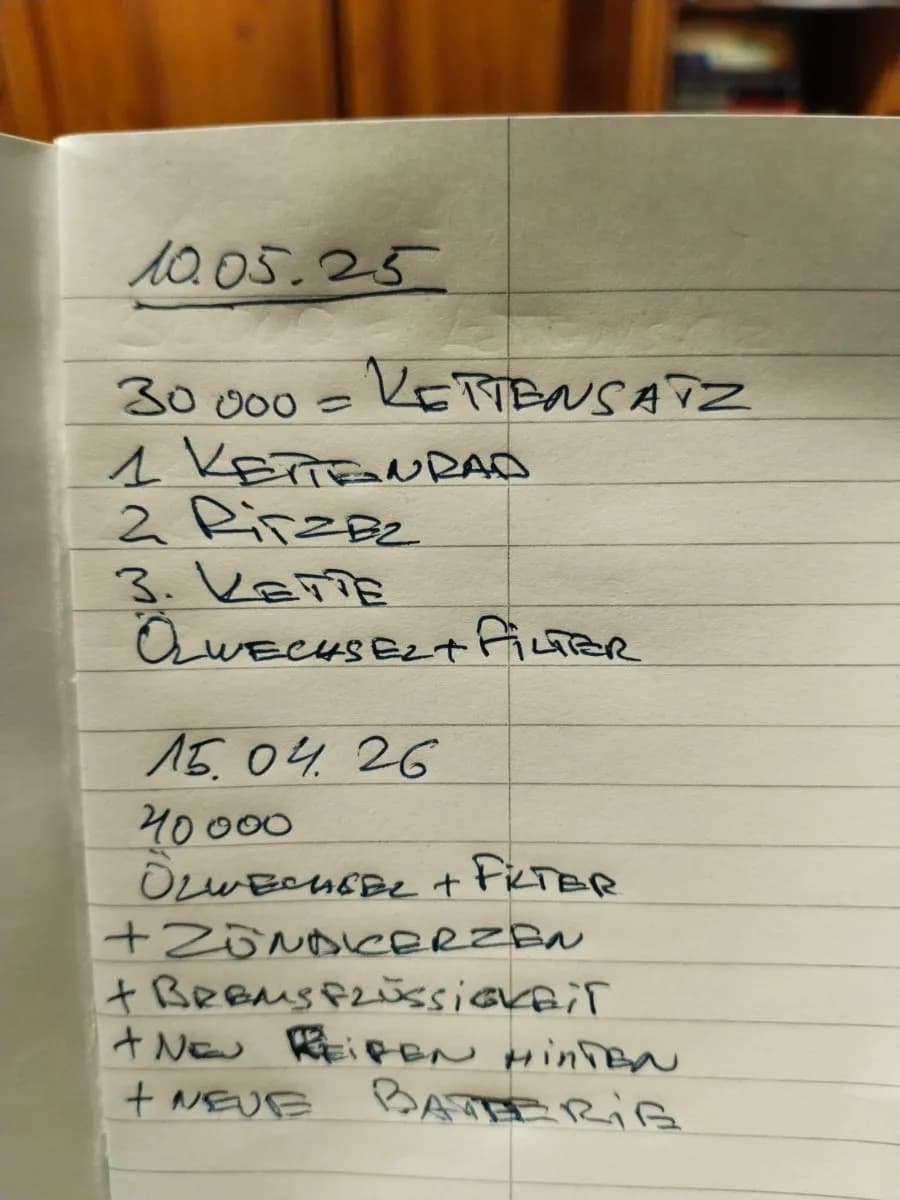 10.05.25
30 000 = KETTENSATZ
1 KETTENRAD
2 RiTZEL
3. KETTE
ÖLWECHSEL + FiLTER
15.04.26
40 000
ÖLWECHSEL + FiLTER
+ ZÜNDKERZEN
+ BREMSFLÜSSiGKEiT
+ NEU REiFEN HiNTEN
+ NEUE BATTERiE